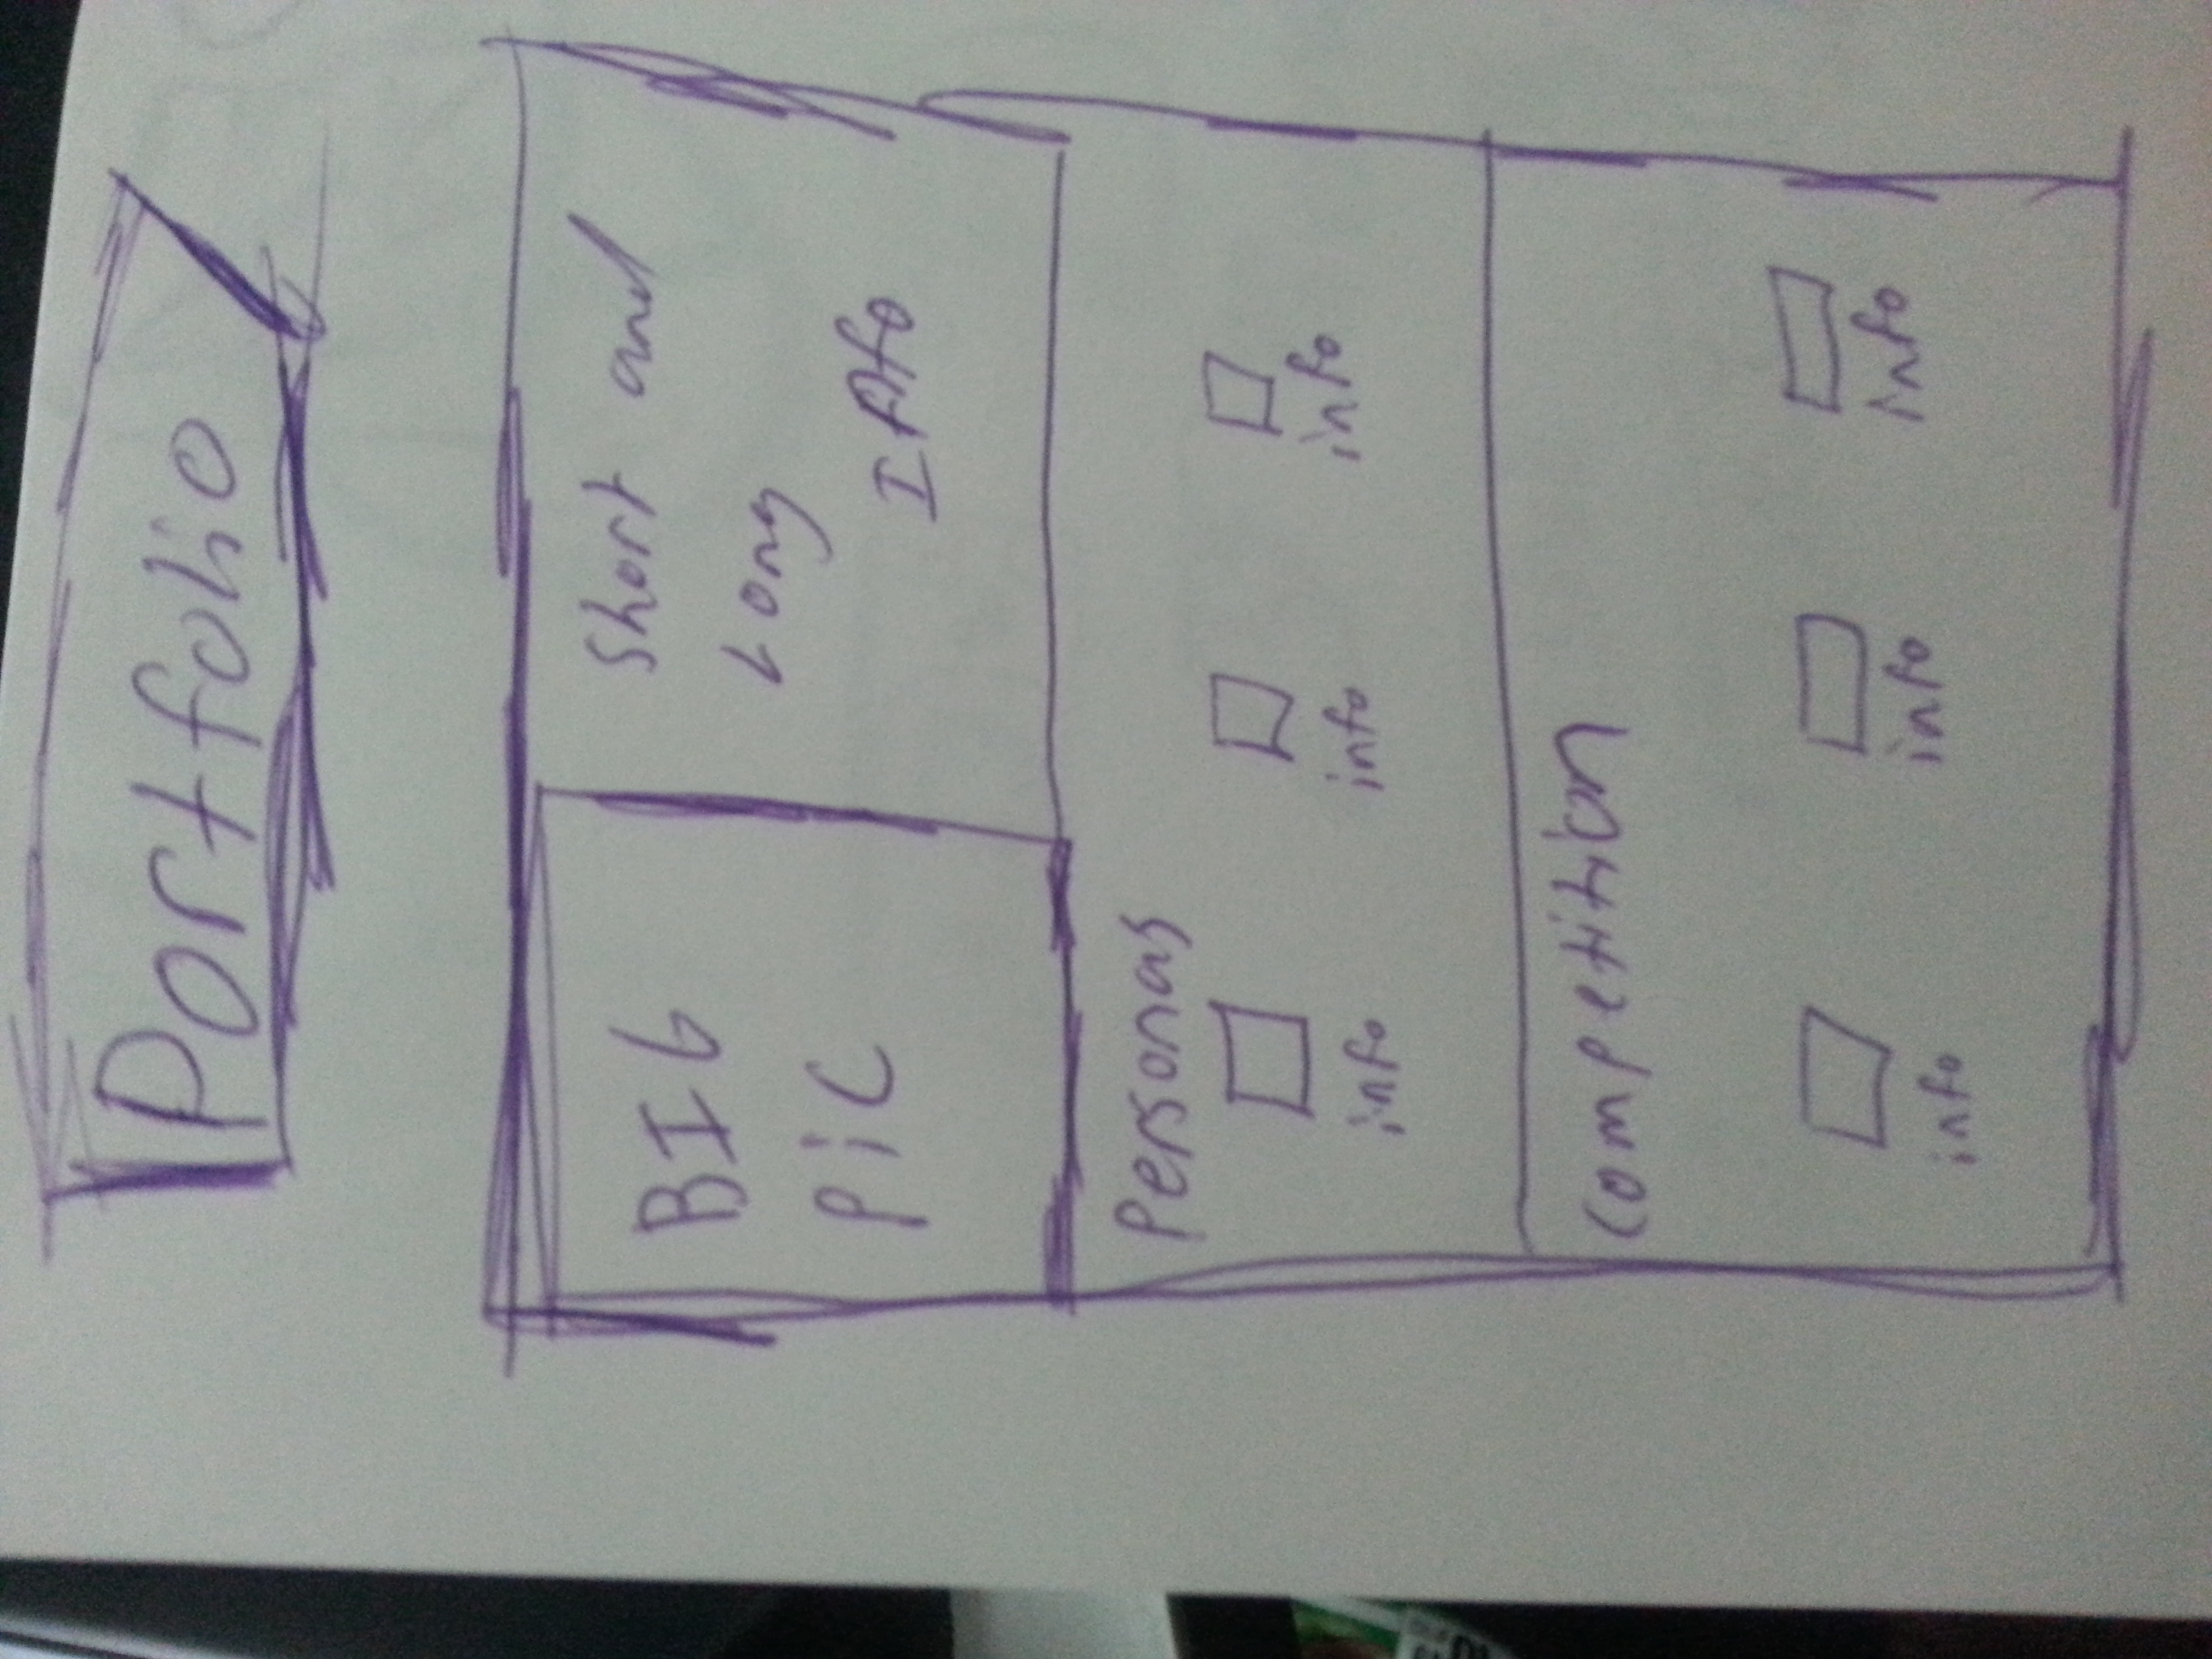 Portfolio
BIG
PiC
Short and
Long
Info
Personas
info info info
Competition
info info info